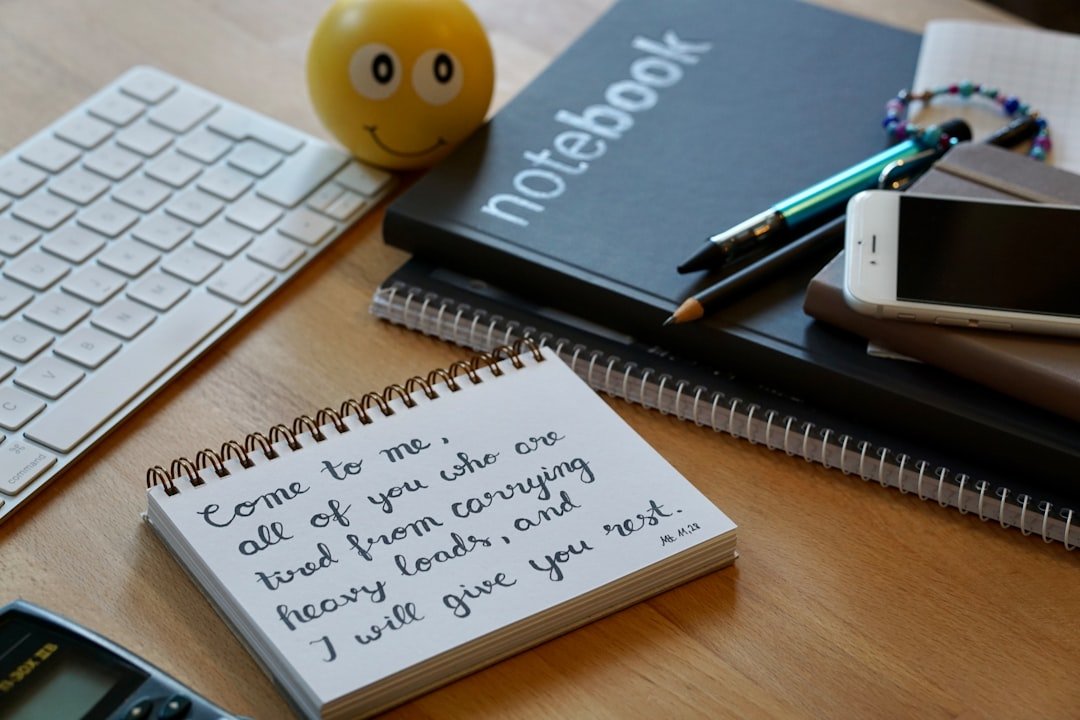 notebook
Come to me,
all of you who are
tired from carrying
heavy loads, and
I will give you rest.
Mt 11,28
command